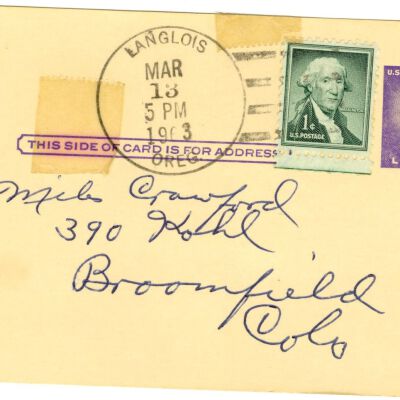 LANGLOIS
MAR
13
5 PM
1963
OREG.
1¢
U.S. POSTAGE
U.S
L
THIS SIDE OF CARD IS FOR ADDRESS
Miles Crawford
390 Kohl
Broomfield
Colo